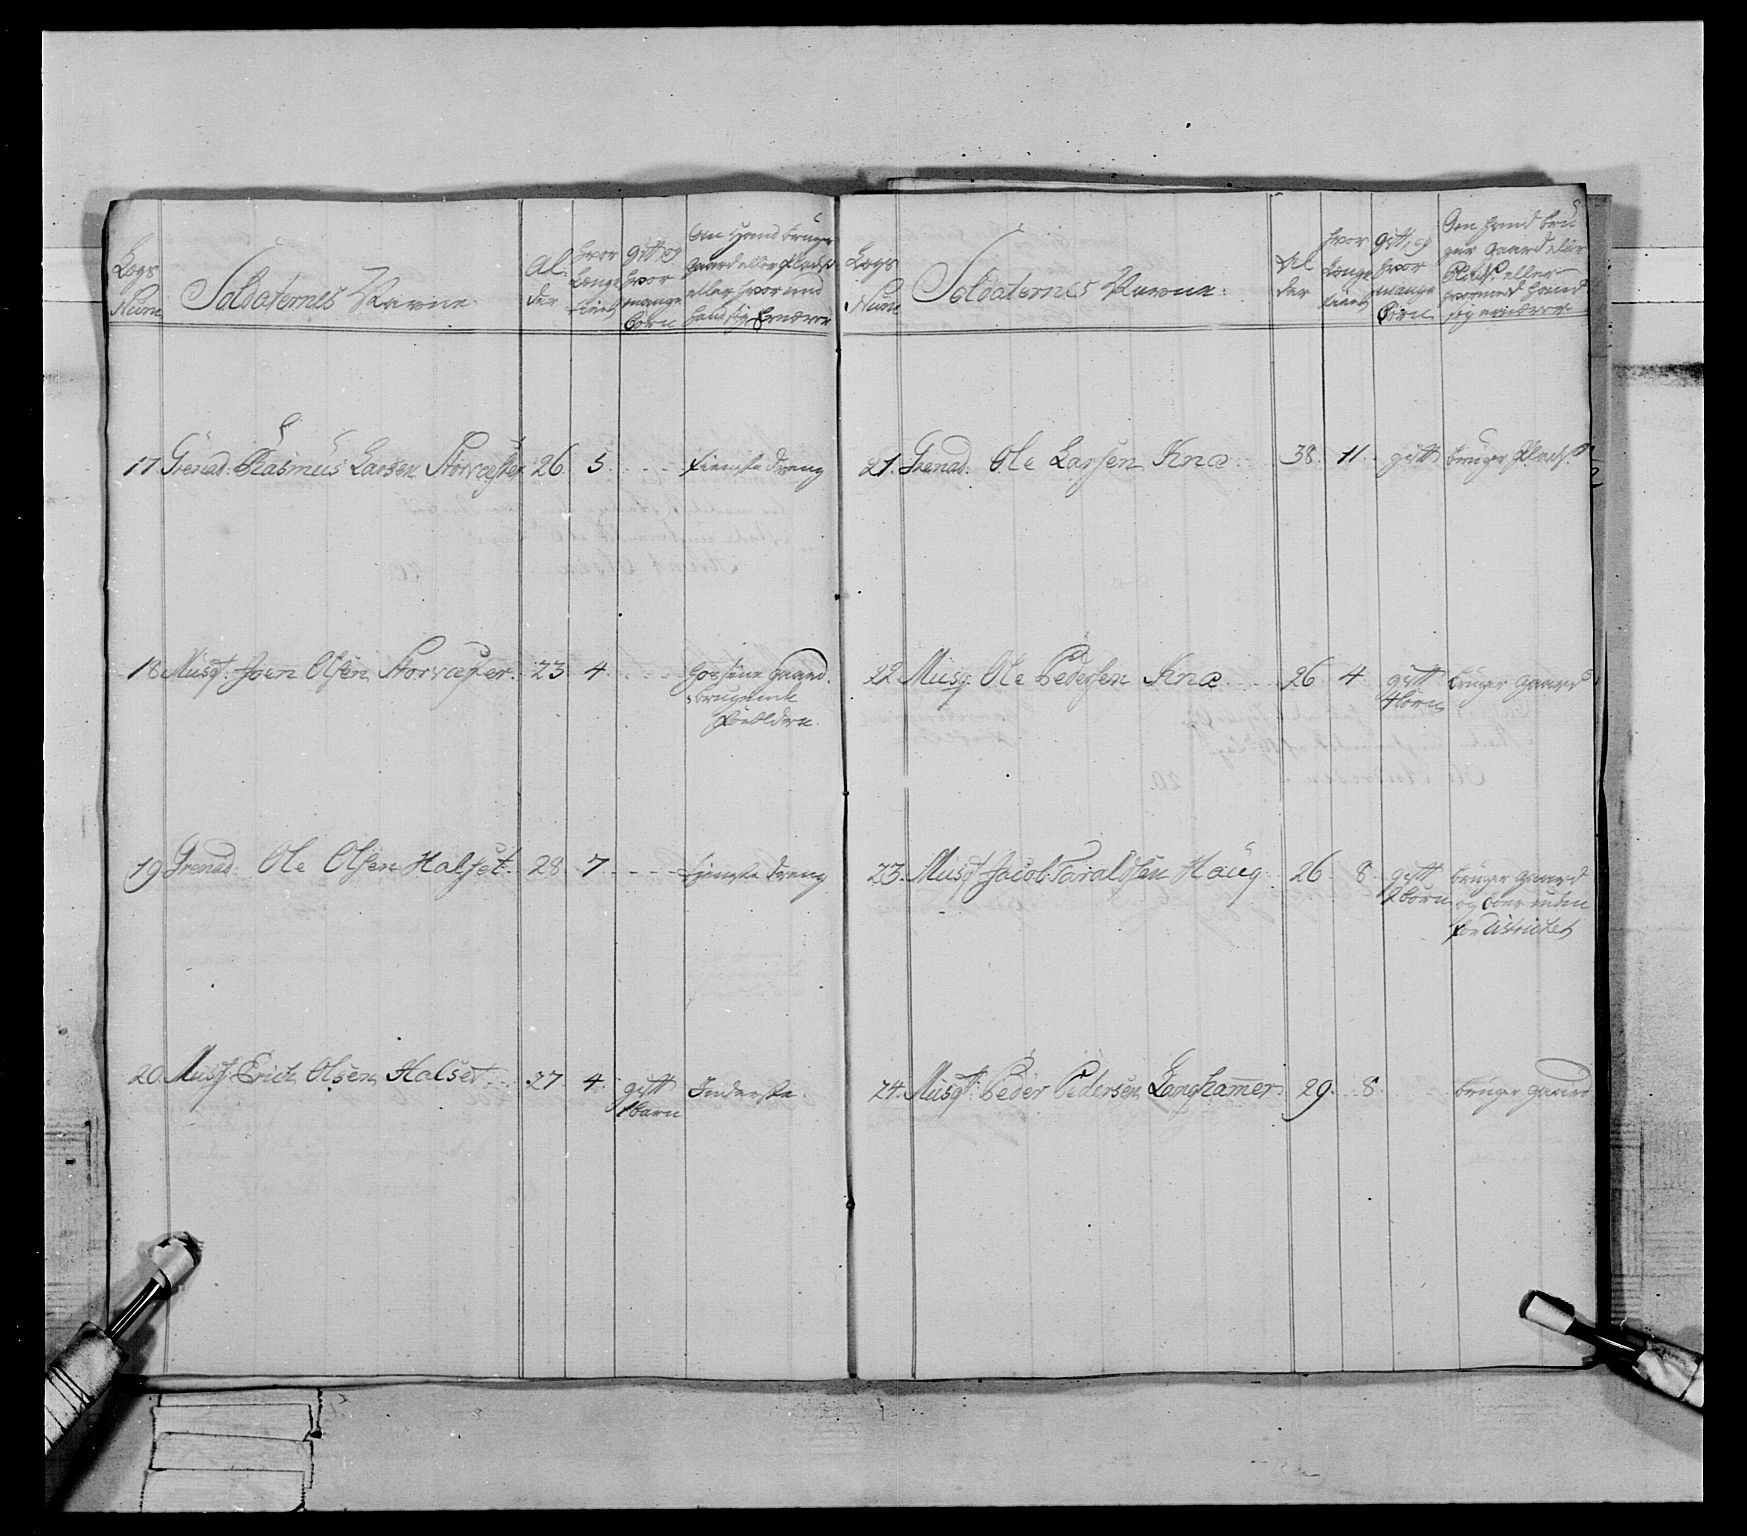 Legs Num
Soldaternes Navne.
Al: der
hvor Længe tient
gift og hvor mange børn
Om Hand bruger
Gaard eller Pladtz
eller hvor med
hand sig Ernærer
17 Grenad: Rasmus Larsen Storvæster 26. 5. - - - tieneste dreng
18 Musq: Joen Olsen Storvæster. 23. 4. - - hos sine gaard.
brugende
Forældern.
19 Grenad: Ole Olsen Halset. 28. 7. - - - tieneste dreng
20 Musq: Erich Olsen Halset. 27. 4. gift Inderste.
1 barn
Legs Num
Soldaternes Navne.
Al der
hvor Længe tient
gift, og hvor mange børn
Om hand bru
ger gaard eller
Plads eller
hvormed hand
sig ernærer
21. Grenad: Ole Larsen Knæ. 38. 11. gift bruger Plads
22 Musq: Ole Pedersen Knæ. 26. 4. gift bruger gaard
4 børn
23. Musq: Jacob Taraldsen Haug. 26. 8. gift bruger gaard
2 børn og boer uden
for districtet
24. Musq: Peder Pedersen Langhamer. 29. 8. bruger gaard